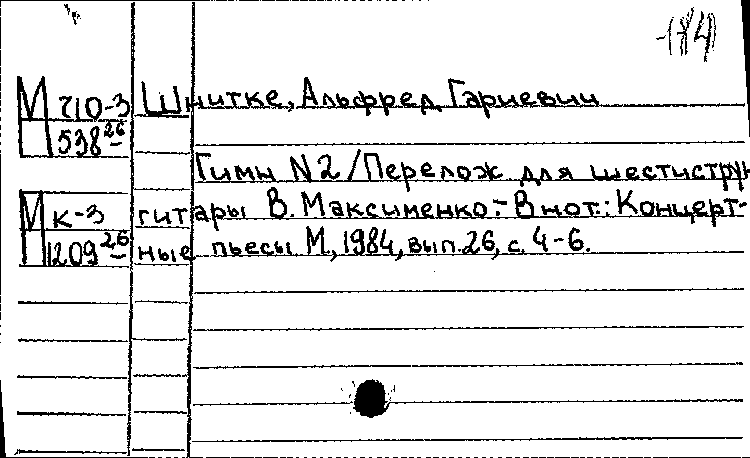 184
М Ч10-3 Шнитке, Альфред Гариевич
М 538 26-
Гимн N2/Перелож для шестистру
М к-3 гитары В. Максименко.- В нот.: Концерт-
М 1209 26- ные пьесы М., 1984, вып. 26, с. 4-6.